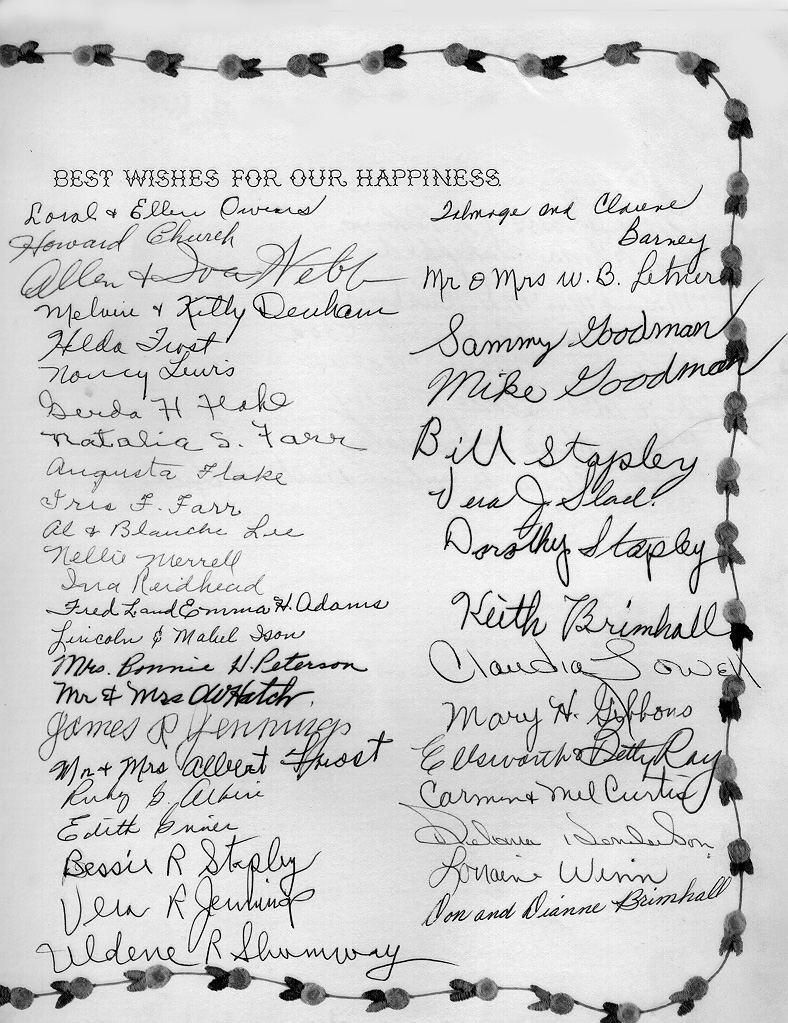 BEST WISHES FOR OUR HAPPINESS
Loral & Ellen Owens
Howard Church
Allen & Iva Webb
Melvin & Kitty Denham
Hilda Frost
Nancy Lewis
Gerda H Flake
Natalia S. Farr
Augusta Flake
Iris F. Farr
Al & Blanche Lee
Nellie Merrell
Ina Reidhead
Fred L and Emma H. Adams
Lincoln & Mabel Ison
Mrs. Bonnie H. Peterson
Mr & Mrs Hatch
James R Jennings
Mr & Mrs Albert Frost
Ruby G.
Edith Griner
Bessie R Stapley
Vera R Jennings
Uldene R Shumway
Talmage and Clarene
Barney
Mr & Mrs W. B.
Sammy Goodman
Mike Goodman
Bill Stapley
Vera J. Slade
Dorothy Stapley
Keith Brimhall
Claudia Lowell
Mary H. Gibbons
Ellsworth & Betty Ray
Carmen & Mel Curtis
Henderson
Lorraine Winn
Don and Dianne Brimhall